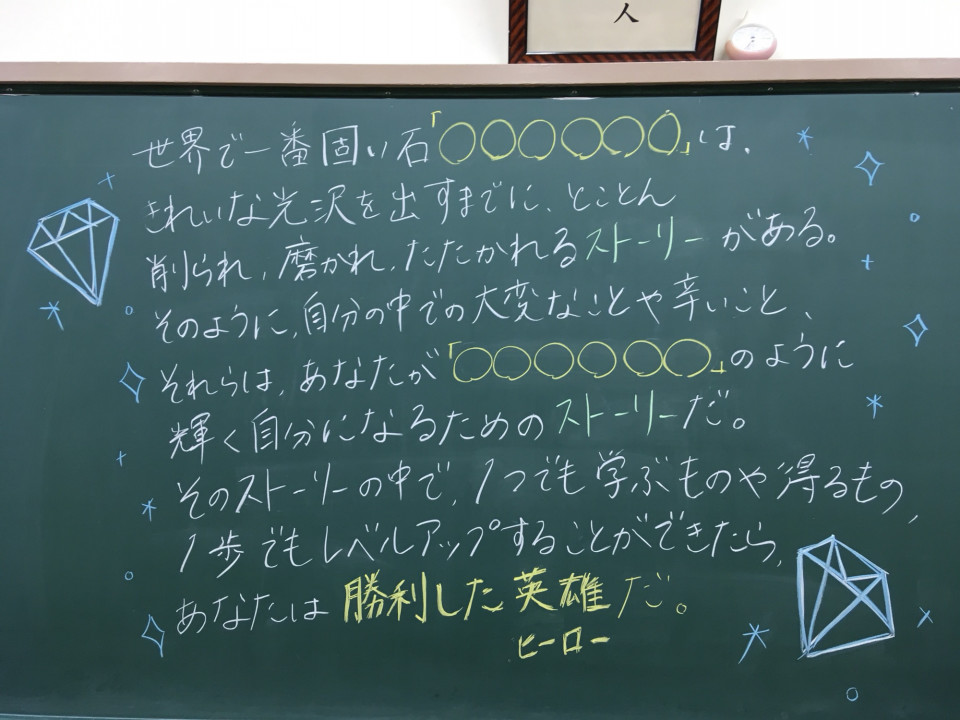 人
世界で一番固い石「○○○○○○」は、
きれいな光沢を出すまでに、とことん
削られ、磨かれ、たたかれるストーリーがある。
そのように、自分の中での大変なことや辛いこと、
それらは、あなたが「○○○○○○」のように
輝く自分になるためのストーリーだ。
そのストーリーの中で、1つでも学ぶものや得るもの、
1歩でもレベルアップすることができたら、
あなたは勝利した英雄だ。
ヒーロー